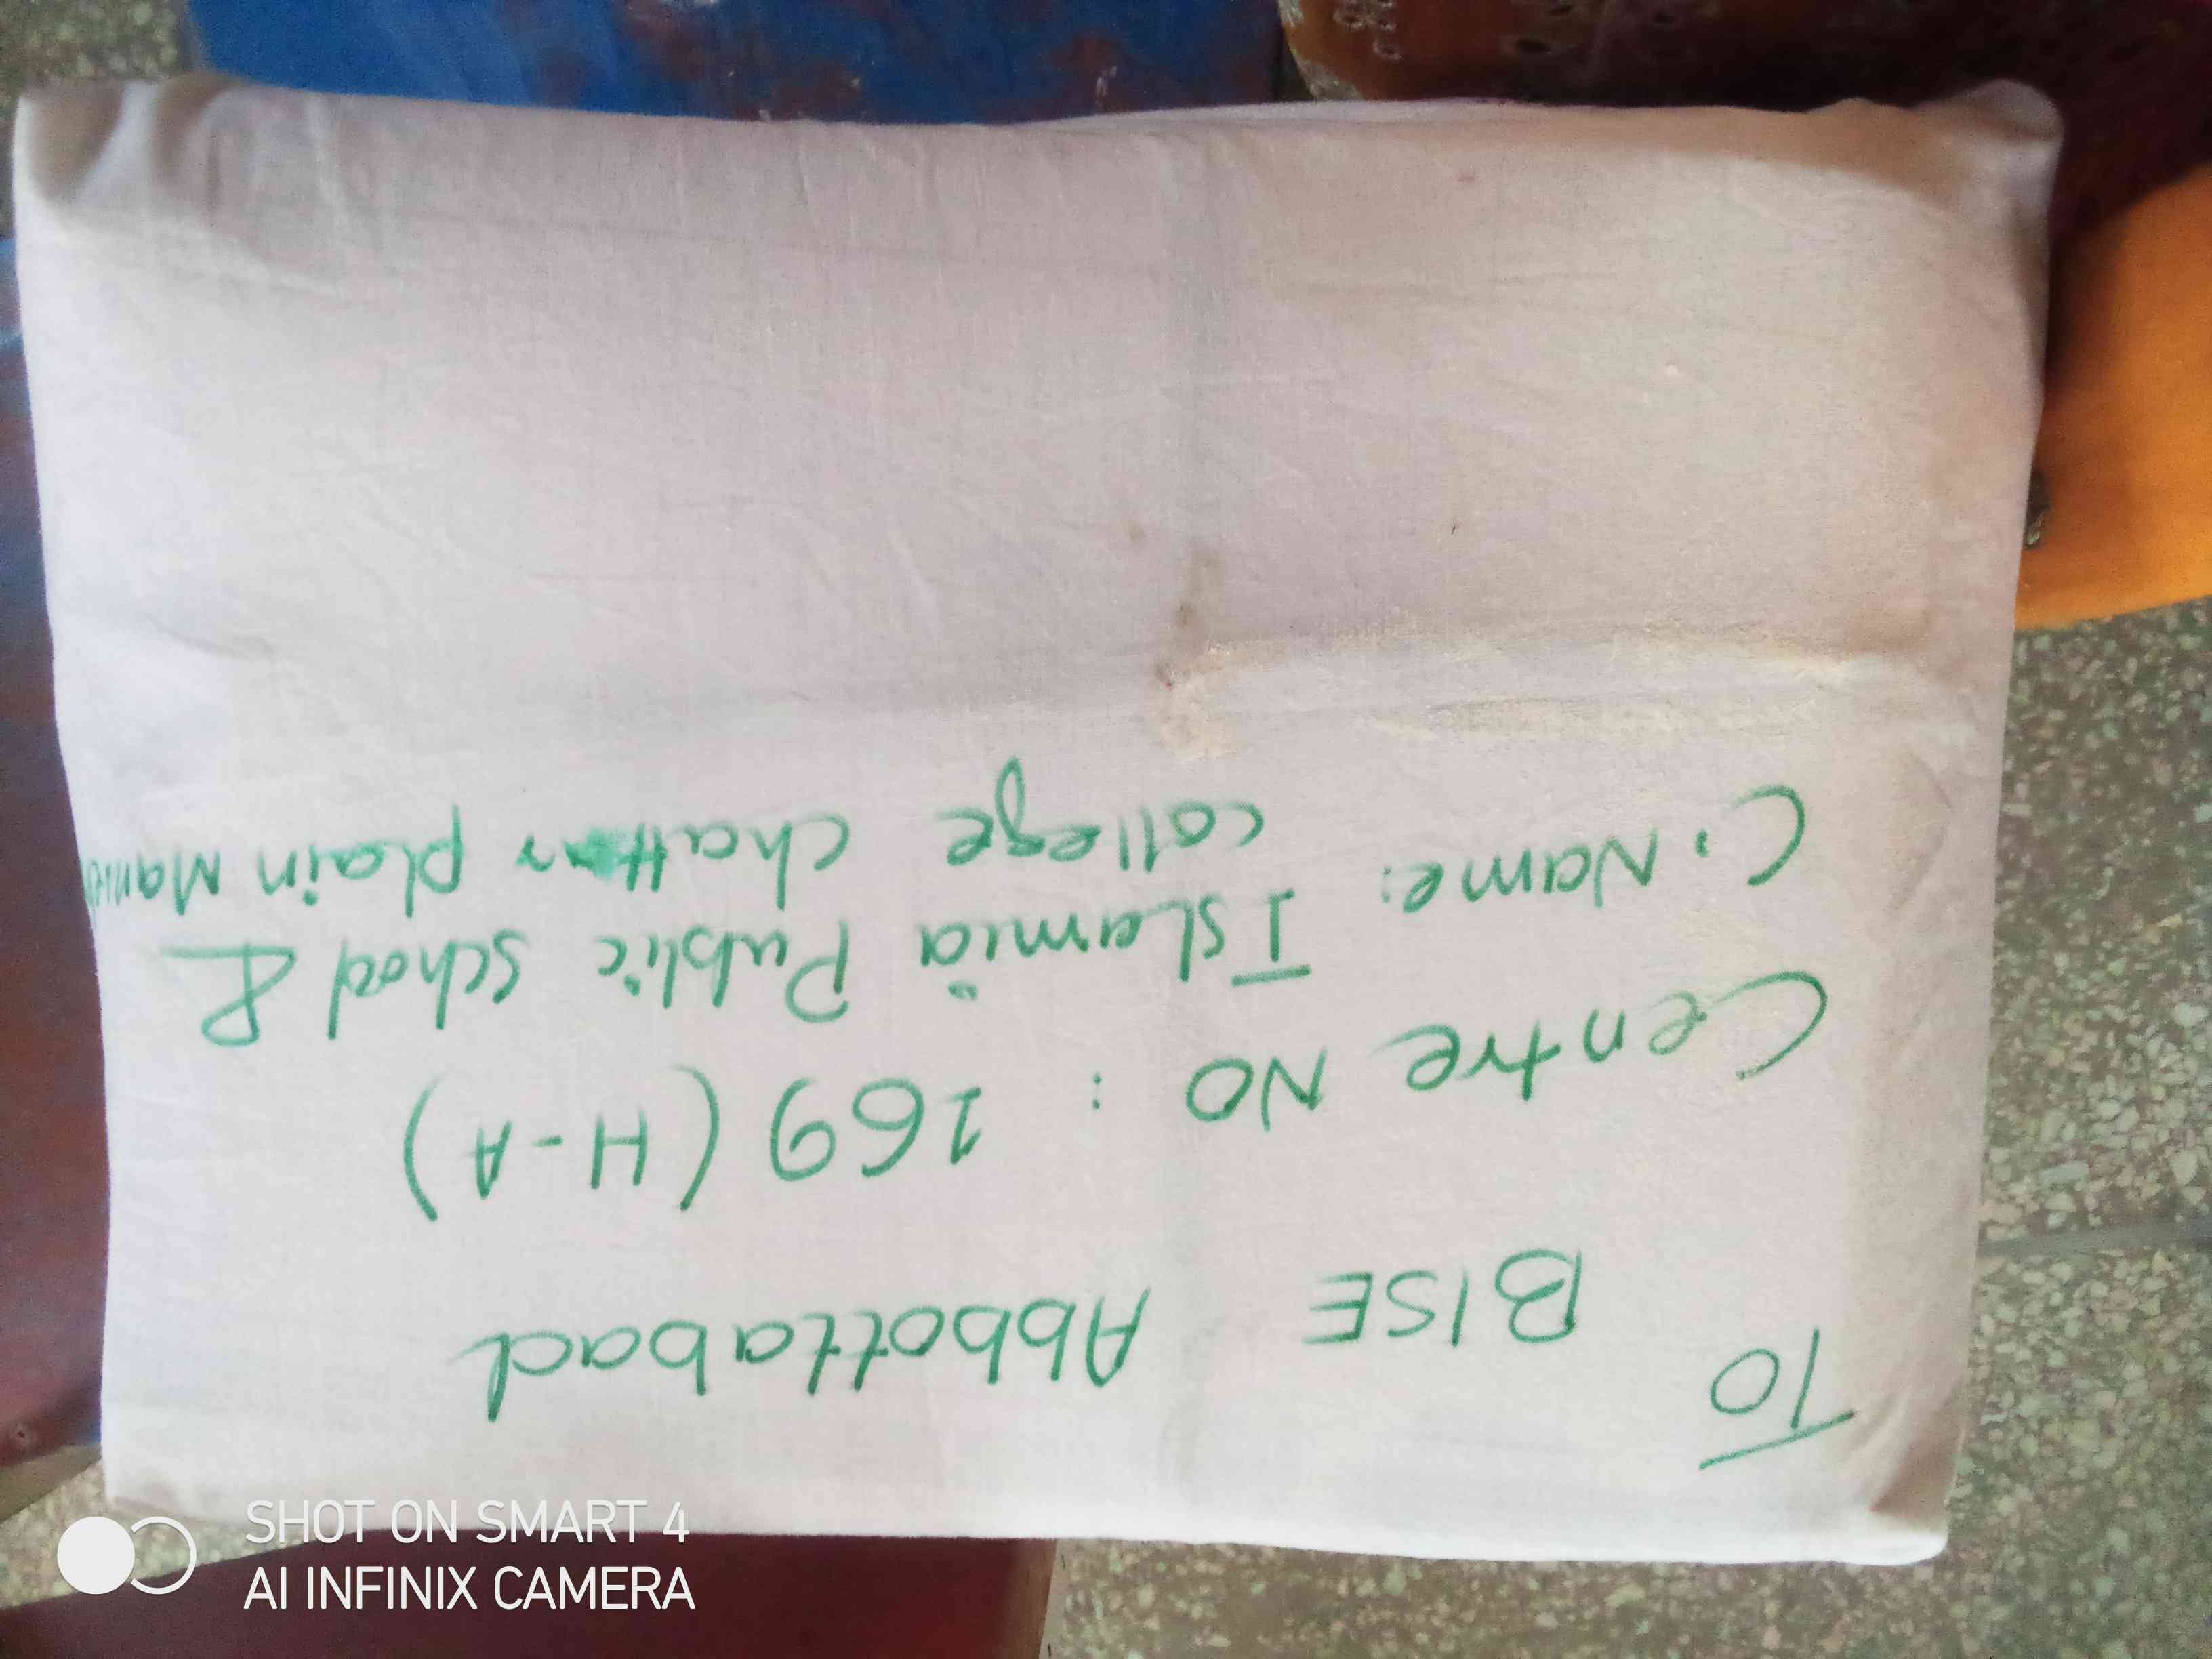 To
BISE Abbottabad
Centre No : 269 (H-A)
C. Name: Islamia Public School &
college chattar plain
SHOT ON SMART 4
AI INFINIX CAMERA